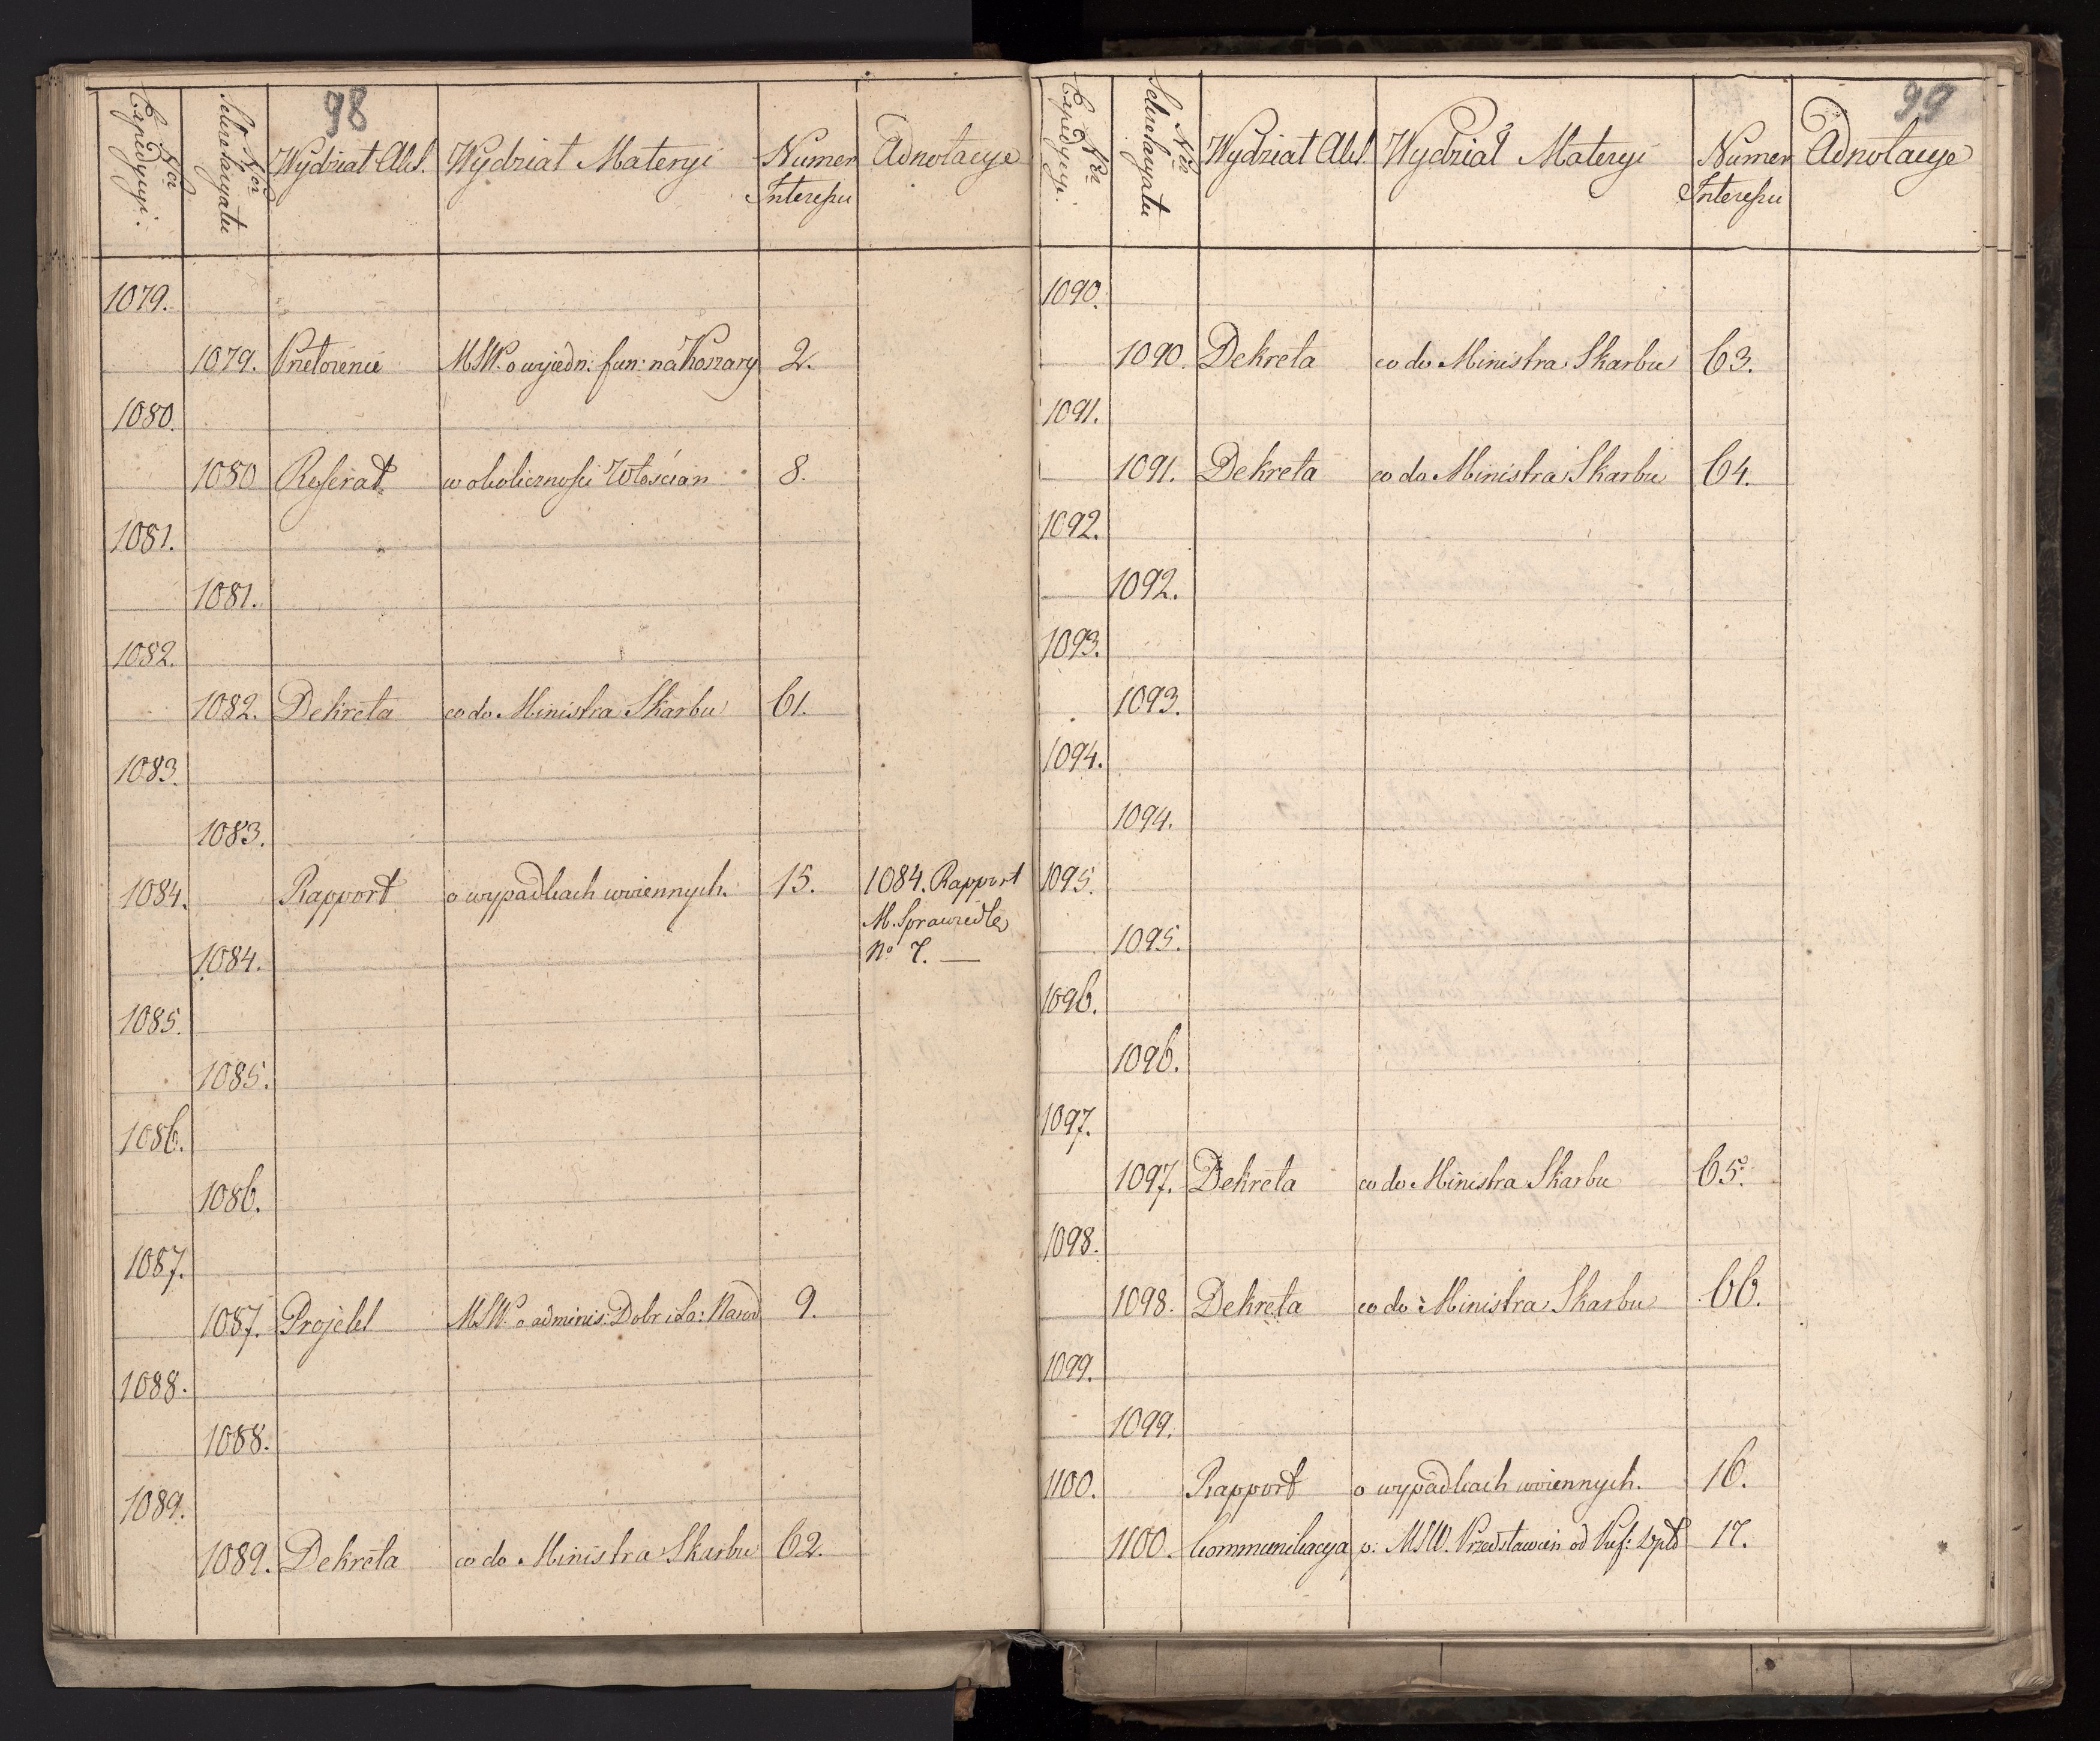 98
Nór Expedycyi.
Nór Sekretaryatu
Wydział Akt.
Wydział Materyi
Numer Interesu
Adnotacye
1079.
1079. Przełożenie MSW. o wyjedn: fun: na Koszary 2.
1080.
1080 Referat w okoliczności Włościan 8.
1081.
1081.
1082.
1082. Dekreta co do Ministra Skarbu 61.
1083.
1083.
1084. Rapport o wypadkach woiennych. 15. 1084. Rapport
M. Sprawiedle
1084. No 7. —
1085.
1085.
1086.
1086.
1087.
1087. Projekt MSW. o adminis: Dobr i La: Narod 9.
1088.
1088.
1089.
1089. Dekreta co do Ministra Skarbu 62.
99
Nór Expedycyi.
Nór Sekretaryatu
Wydział Akt.
Wydział Materyi
Numer Interesu
Adnotacye
1090.
1090. Dekreta co do Ministra Skarbu 63.
1091.
1091. Dekreta co do Ministra Skarbu 64.
1092.
1092.
1093.
1093.
1094.
1094.
1095.
1095.
1096.
1096.
1097.
1097. Dekreta co do Ministra Skarbu 65.
1098.
1098. Dekreta co do Ministra Skarbu 66.
1099.
1099.
1100. Rapport o wypadkach woiennych. 16.
1100. Kommunikacya p: MSW. Przedstawień od Pref: Dptt 17.